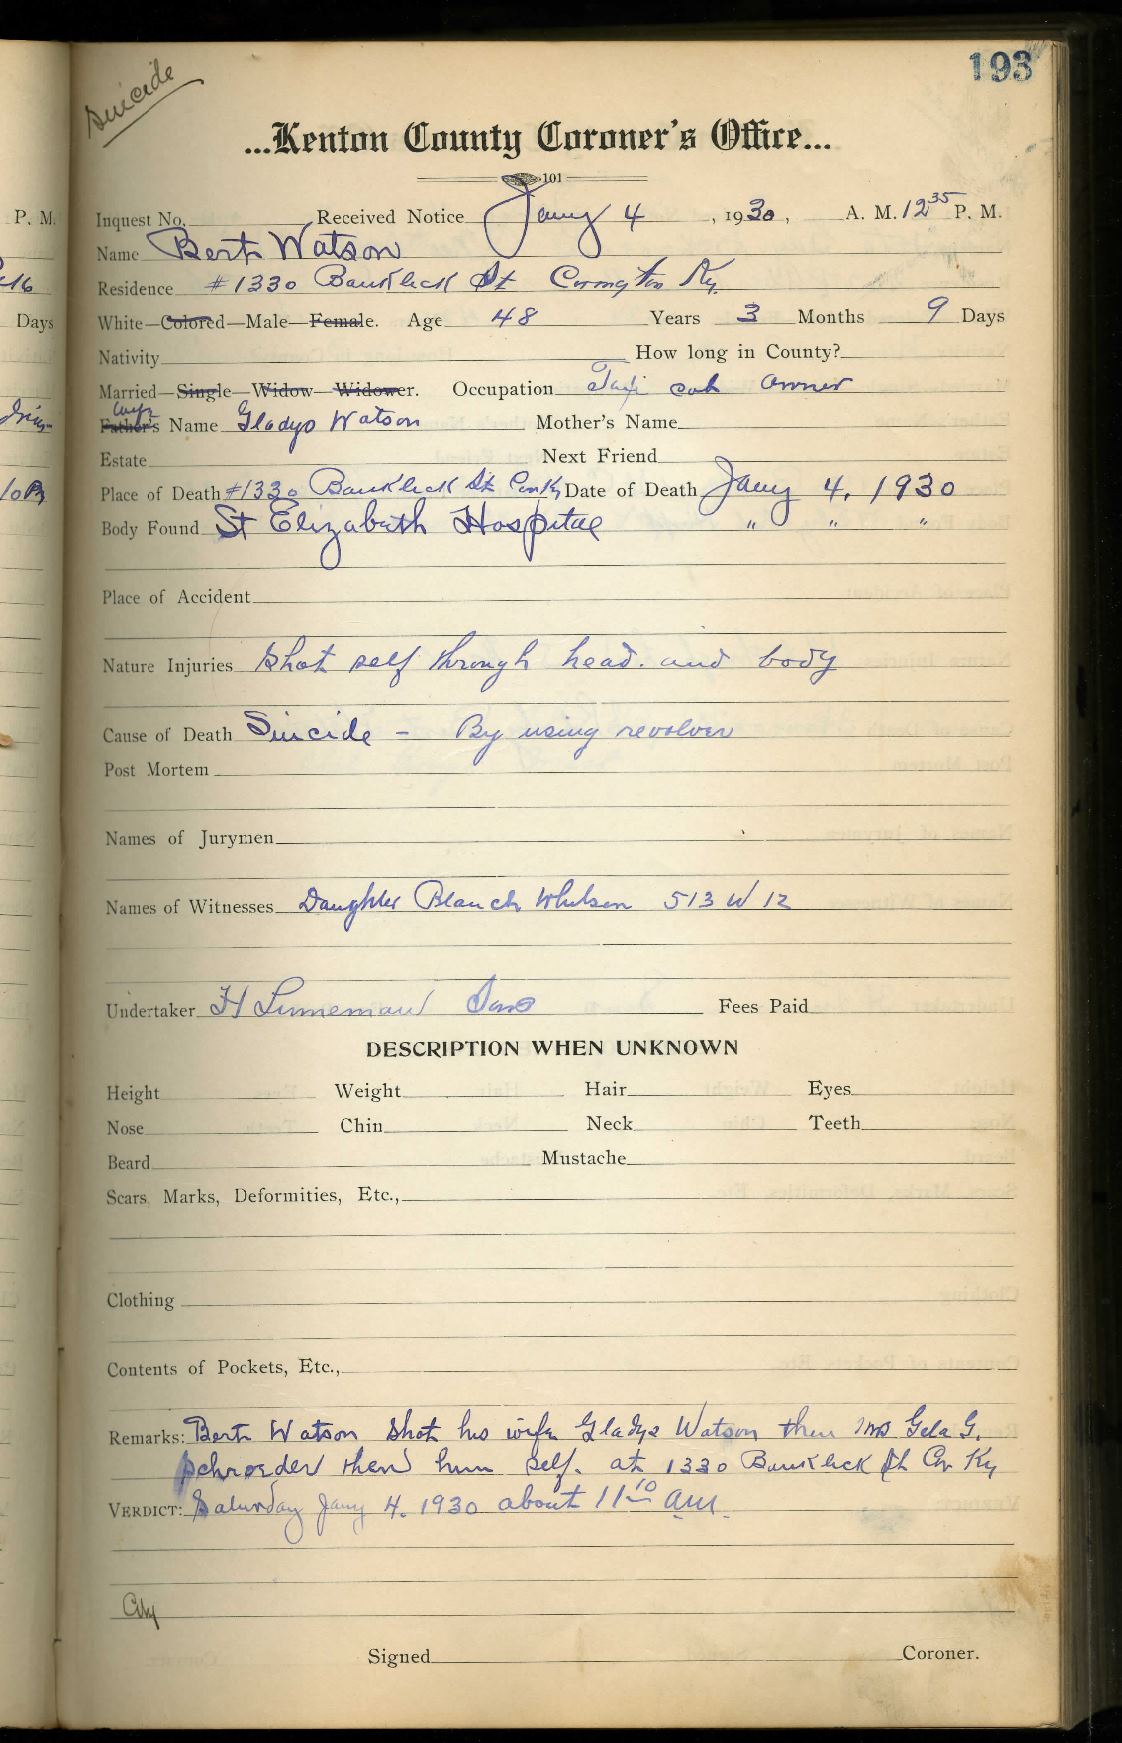 193
Suicide
...Kenton County Coroner's Office...
101
P. M. Inquest No. Received Notice Jany 4, 1930, A. M. 12 35 P. M.
Name Bert Watson
Residence #1330 Bankleck St Covington Ky.
Days White—Colored—Male—Female. Age 48 Years 3 Months 9 Days
Nativity How long in County?
Married—Single—Widow—Widower. Occupation Taxi cab owner
wife
Father's Name Gladys Watson Mother's Name
Estate Next Friend
Place of Death #1330 Bankleck St Date of Death Jany 4, 1930
Body Found St Elizabeth Hospital " " "
Place of Accident
Nature Injuries Shot self through head. and body
Cause of Death Suicide - By using revolver
Post Mortem
Names of Jurymen
Names of Witnesses Daughter Blanch 513 W 12
Undertaker H Linneman Sons Fees Paid
DESCRIPTION WHEN UNKNOWN
Height Weight Hair Eyes
Nose Chin Neck Teeth
Beard Mustache
Scars, Marks, Deformities, Etc.,
Clothing
Contents of Pockets, Etc.,
Remarks: Bert Watson shot his wife Gladys Watson then Mrs G.
Schroeder then him self. at 1330 Bankleck St Cov Ky
VERDICT: Saturday Jany 4. 1930 about 11 10 am.
City
Signed Coroner.